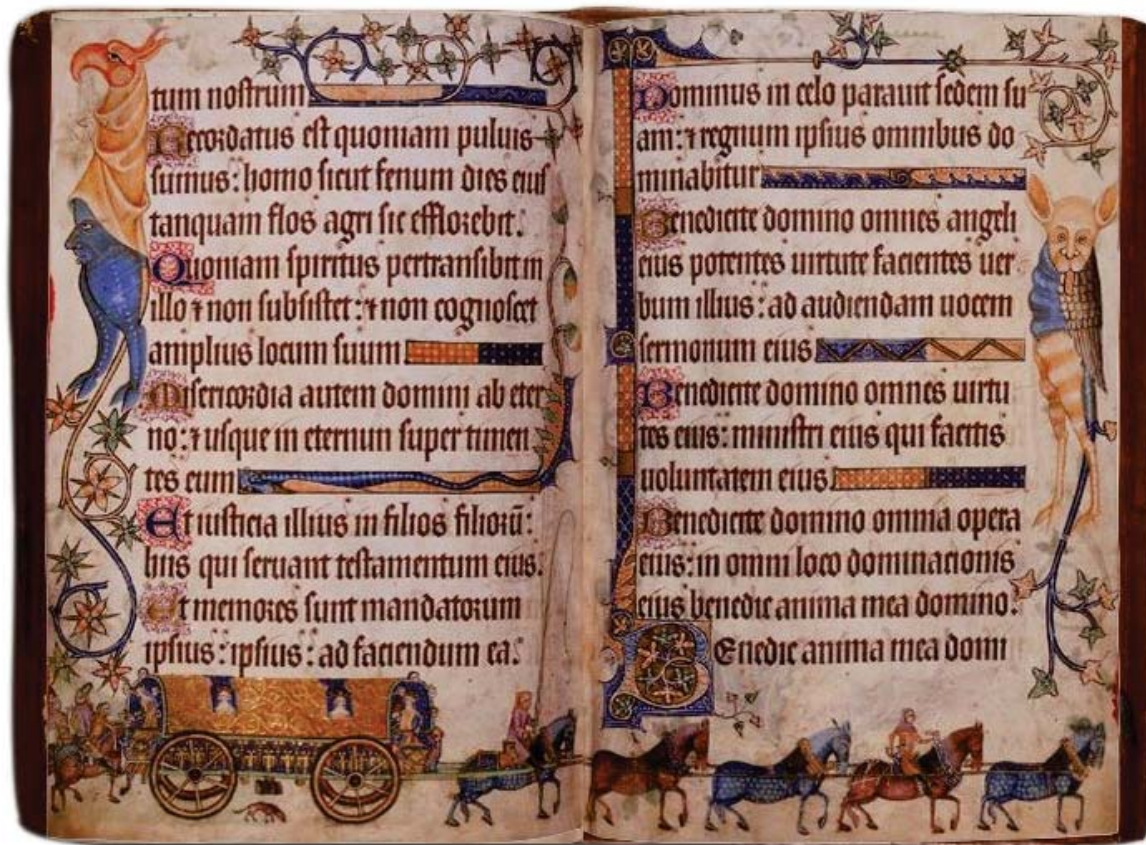 tum nostrum
Recordatus est quoniam puluis
sumus: homo sicut fenum dies eius
tanquam flos agri sic efflorebit.
Quoniam spiritus pertransibit in
illo ⁊ non subsistet: ⁊ non cognoscet
amplius locum suum
Misericordia autem domini ab eter
no: ⁊ usque in eternun super timen
tes eum
Et iusticia illius in filios filiorū:
hiis qui seruant testamentum eius.
Et memores sunt mandatorum
ipsius: ipsius: ad faciendum ea.
Dominus in celo parauit sedem su
am: ⁊ regnum ipsius omnibus do
minabitur
Benedicite domino omnes angeli
eius potentes uirtute facientes uer
bum illius: ad audiendam uocem
sermonum eius
Benedicite domino omnes uirtu
tes eius: ministri eius qui facitis
uoluntatem eius
Benedicite domino omnia opera
eius: in omni loco dominacionis
eius benedic anima mea domino.
Benedic anima mea domi